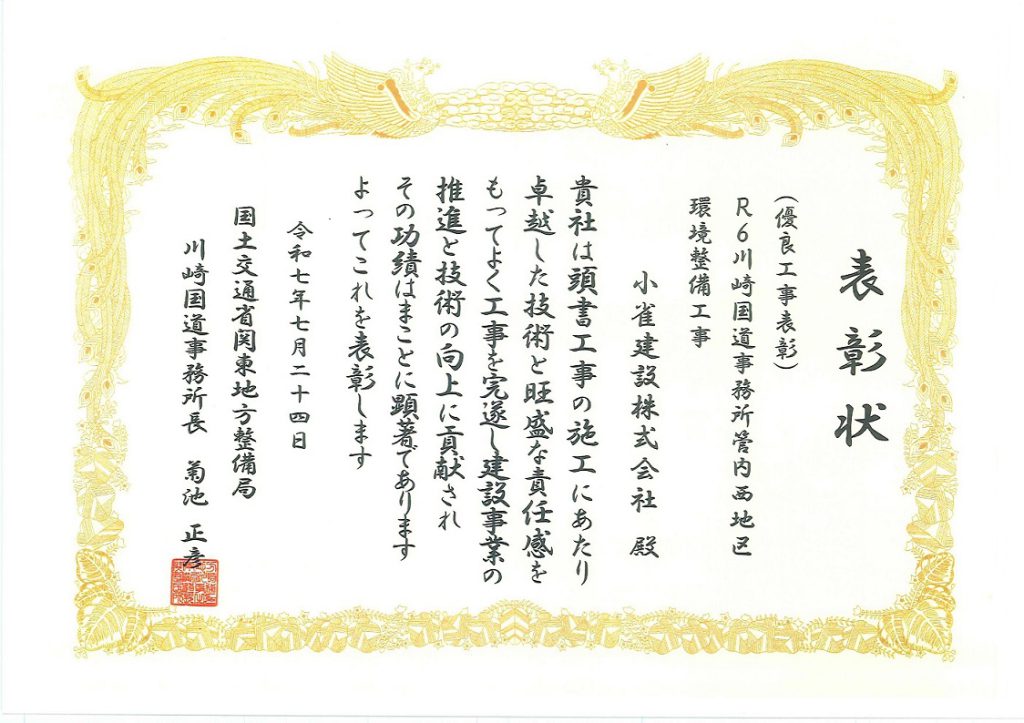 表彰状
(優良工事表彰)
R6川崎国道事務所管内西地区
環境整備工事
小雀建設株式会社 殿
貴社は頭書工事の施工にあたり
卓越した技術と旺盛な責任感を
もってよく工事を完遂し建設事業の
推進と技術の向上に貢献され
その功績はまことに顕著であります
よってこれを表彰します
令和七年七月二十四日
国土交通省関東地方整備局
川崎国道事務所長 菊池 正彦